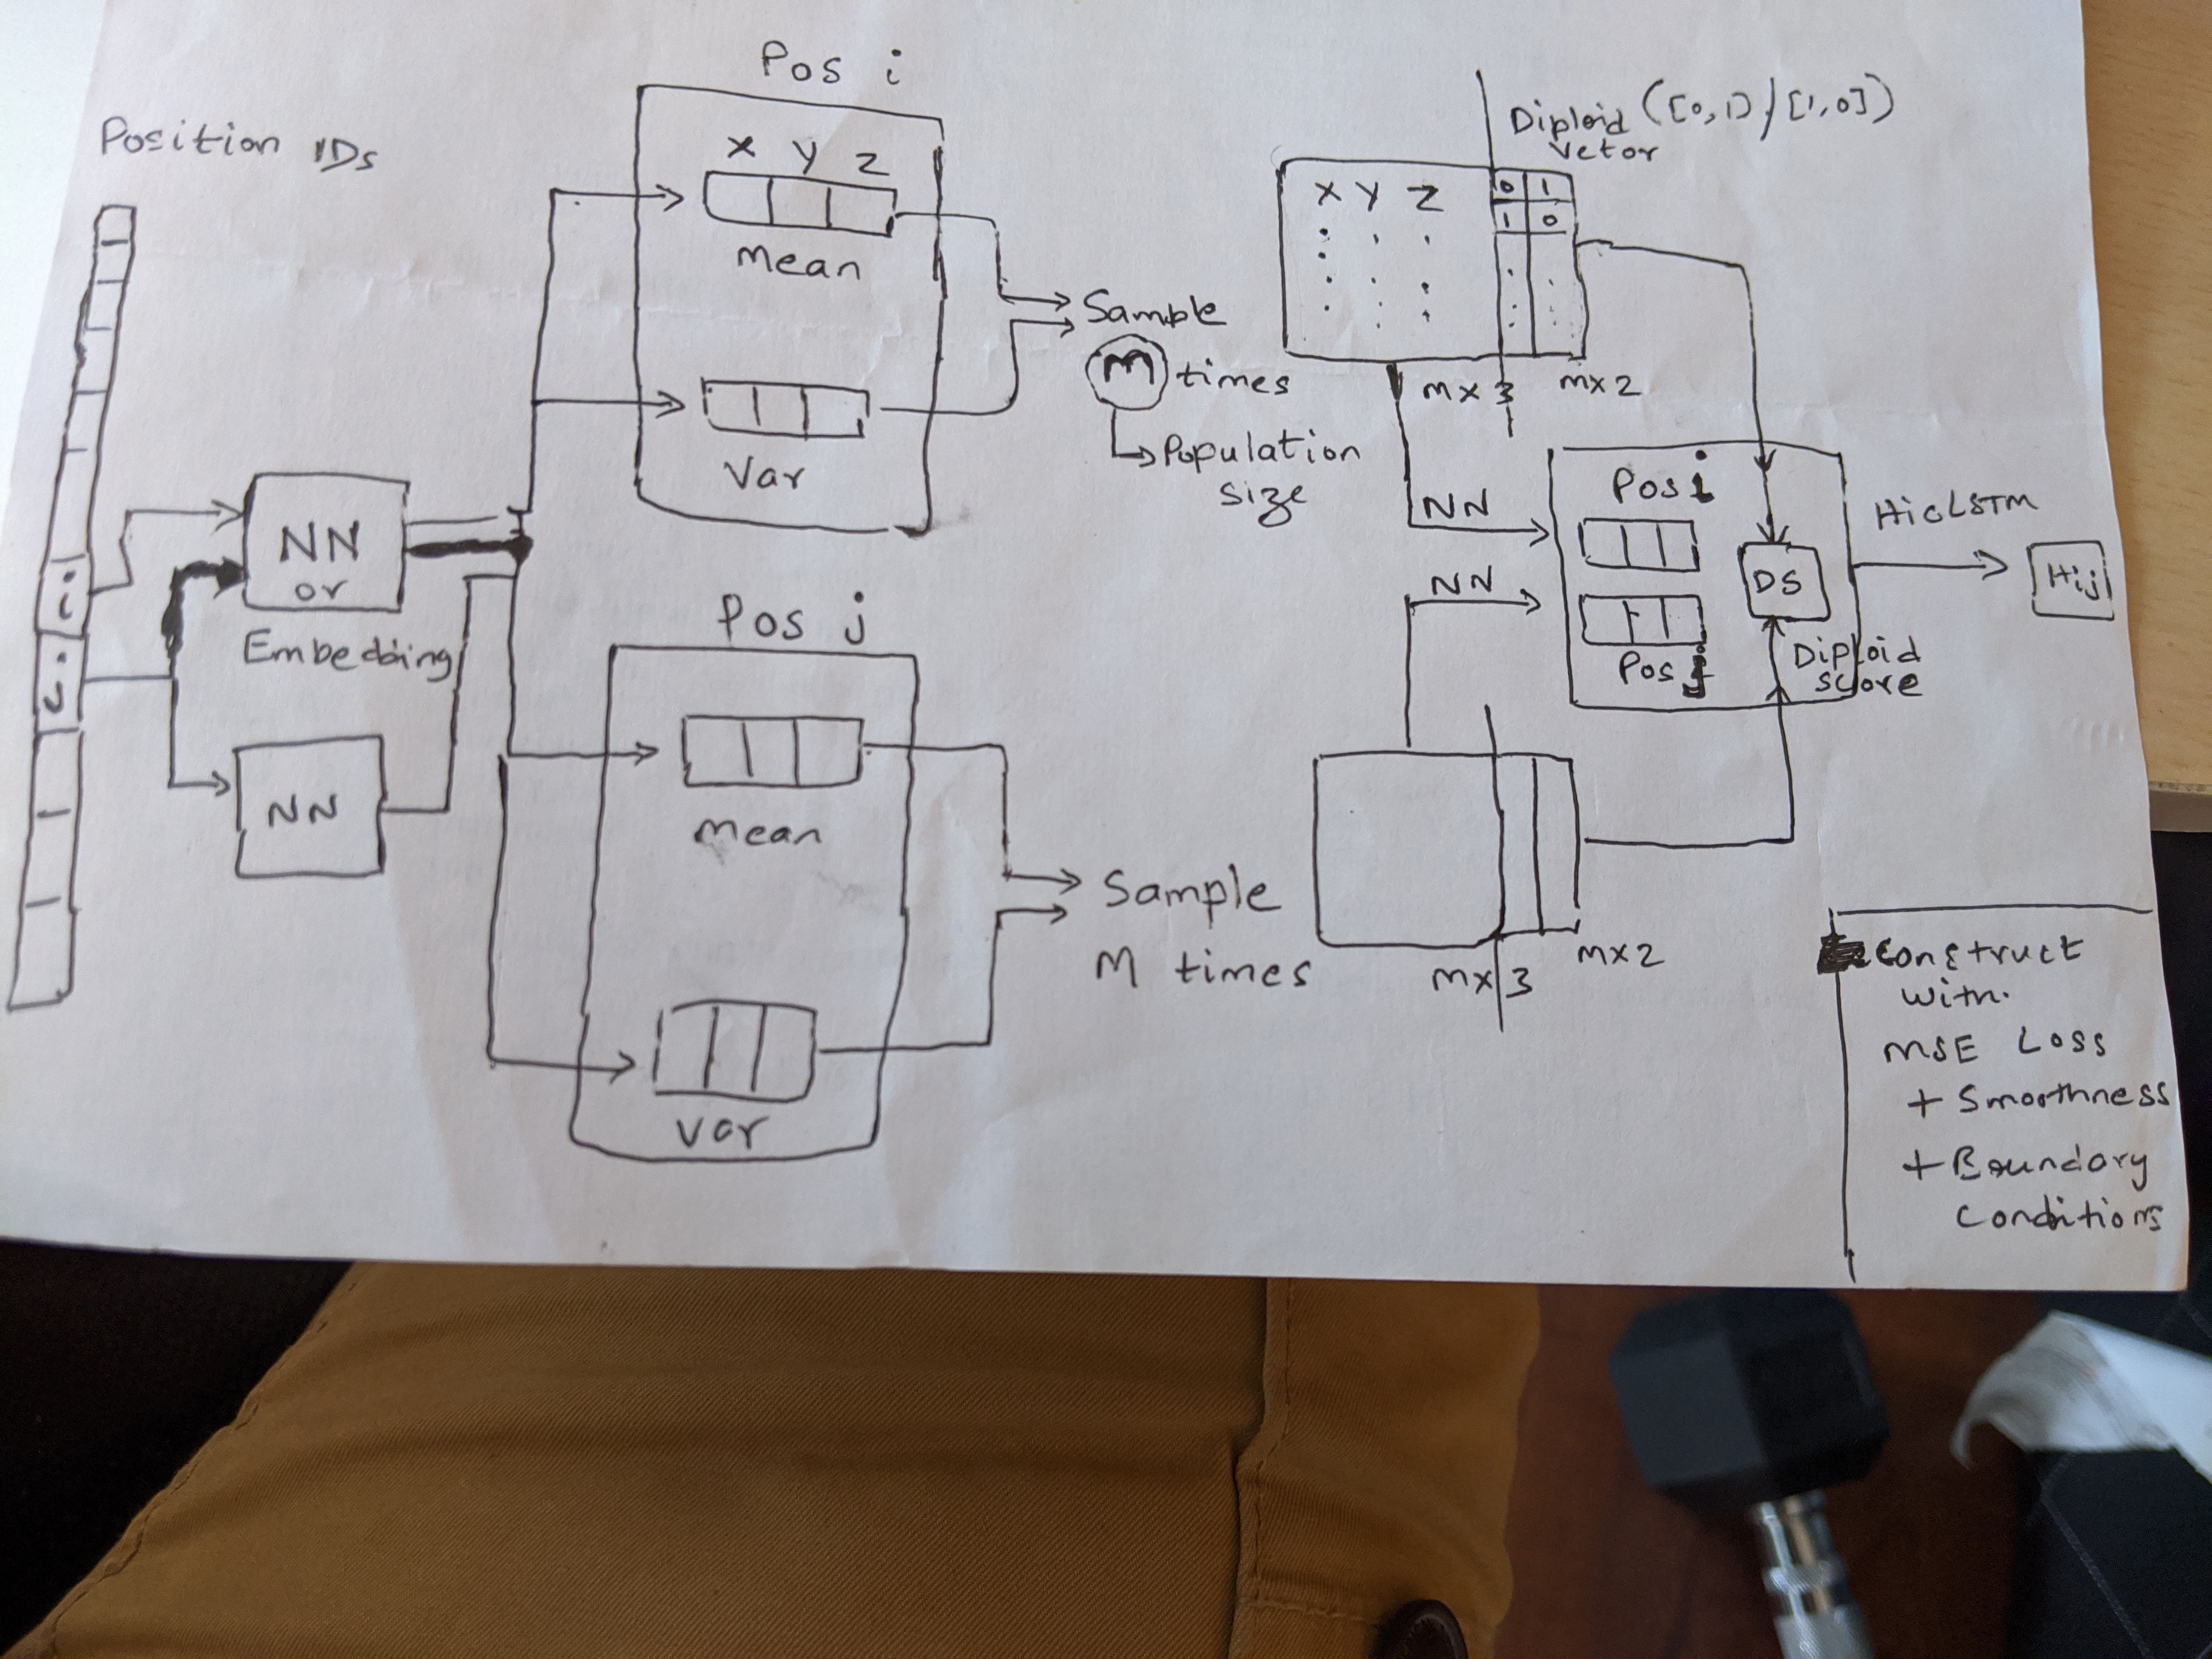 Position IDs
i
j
NN
or
Embedding
NN
Pos i
X Y Z
Mean
Var
Pos j
Mean
Var
Sample
M times
Population
size
Sample
M times
Diploid ([0,1]/[1,0])
Vetor
X Y Z 0 1
1 0
mx3 mx2
NN
NN
Pos i
Pos j
DS
Diploid
score
HicLSTM
Hij
mx3 mx2
Construct
with
MSE Loss
+ Smoothness
+ Boundary
Conditions